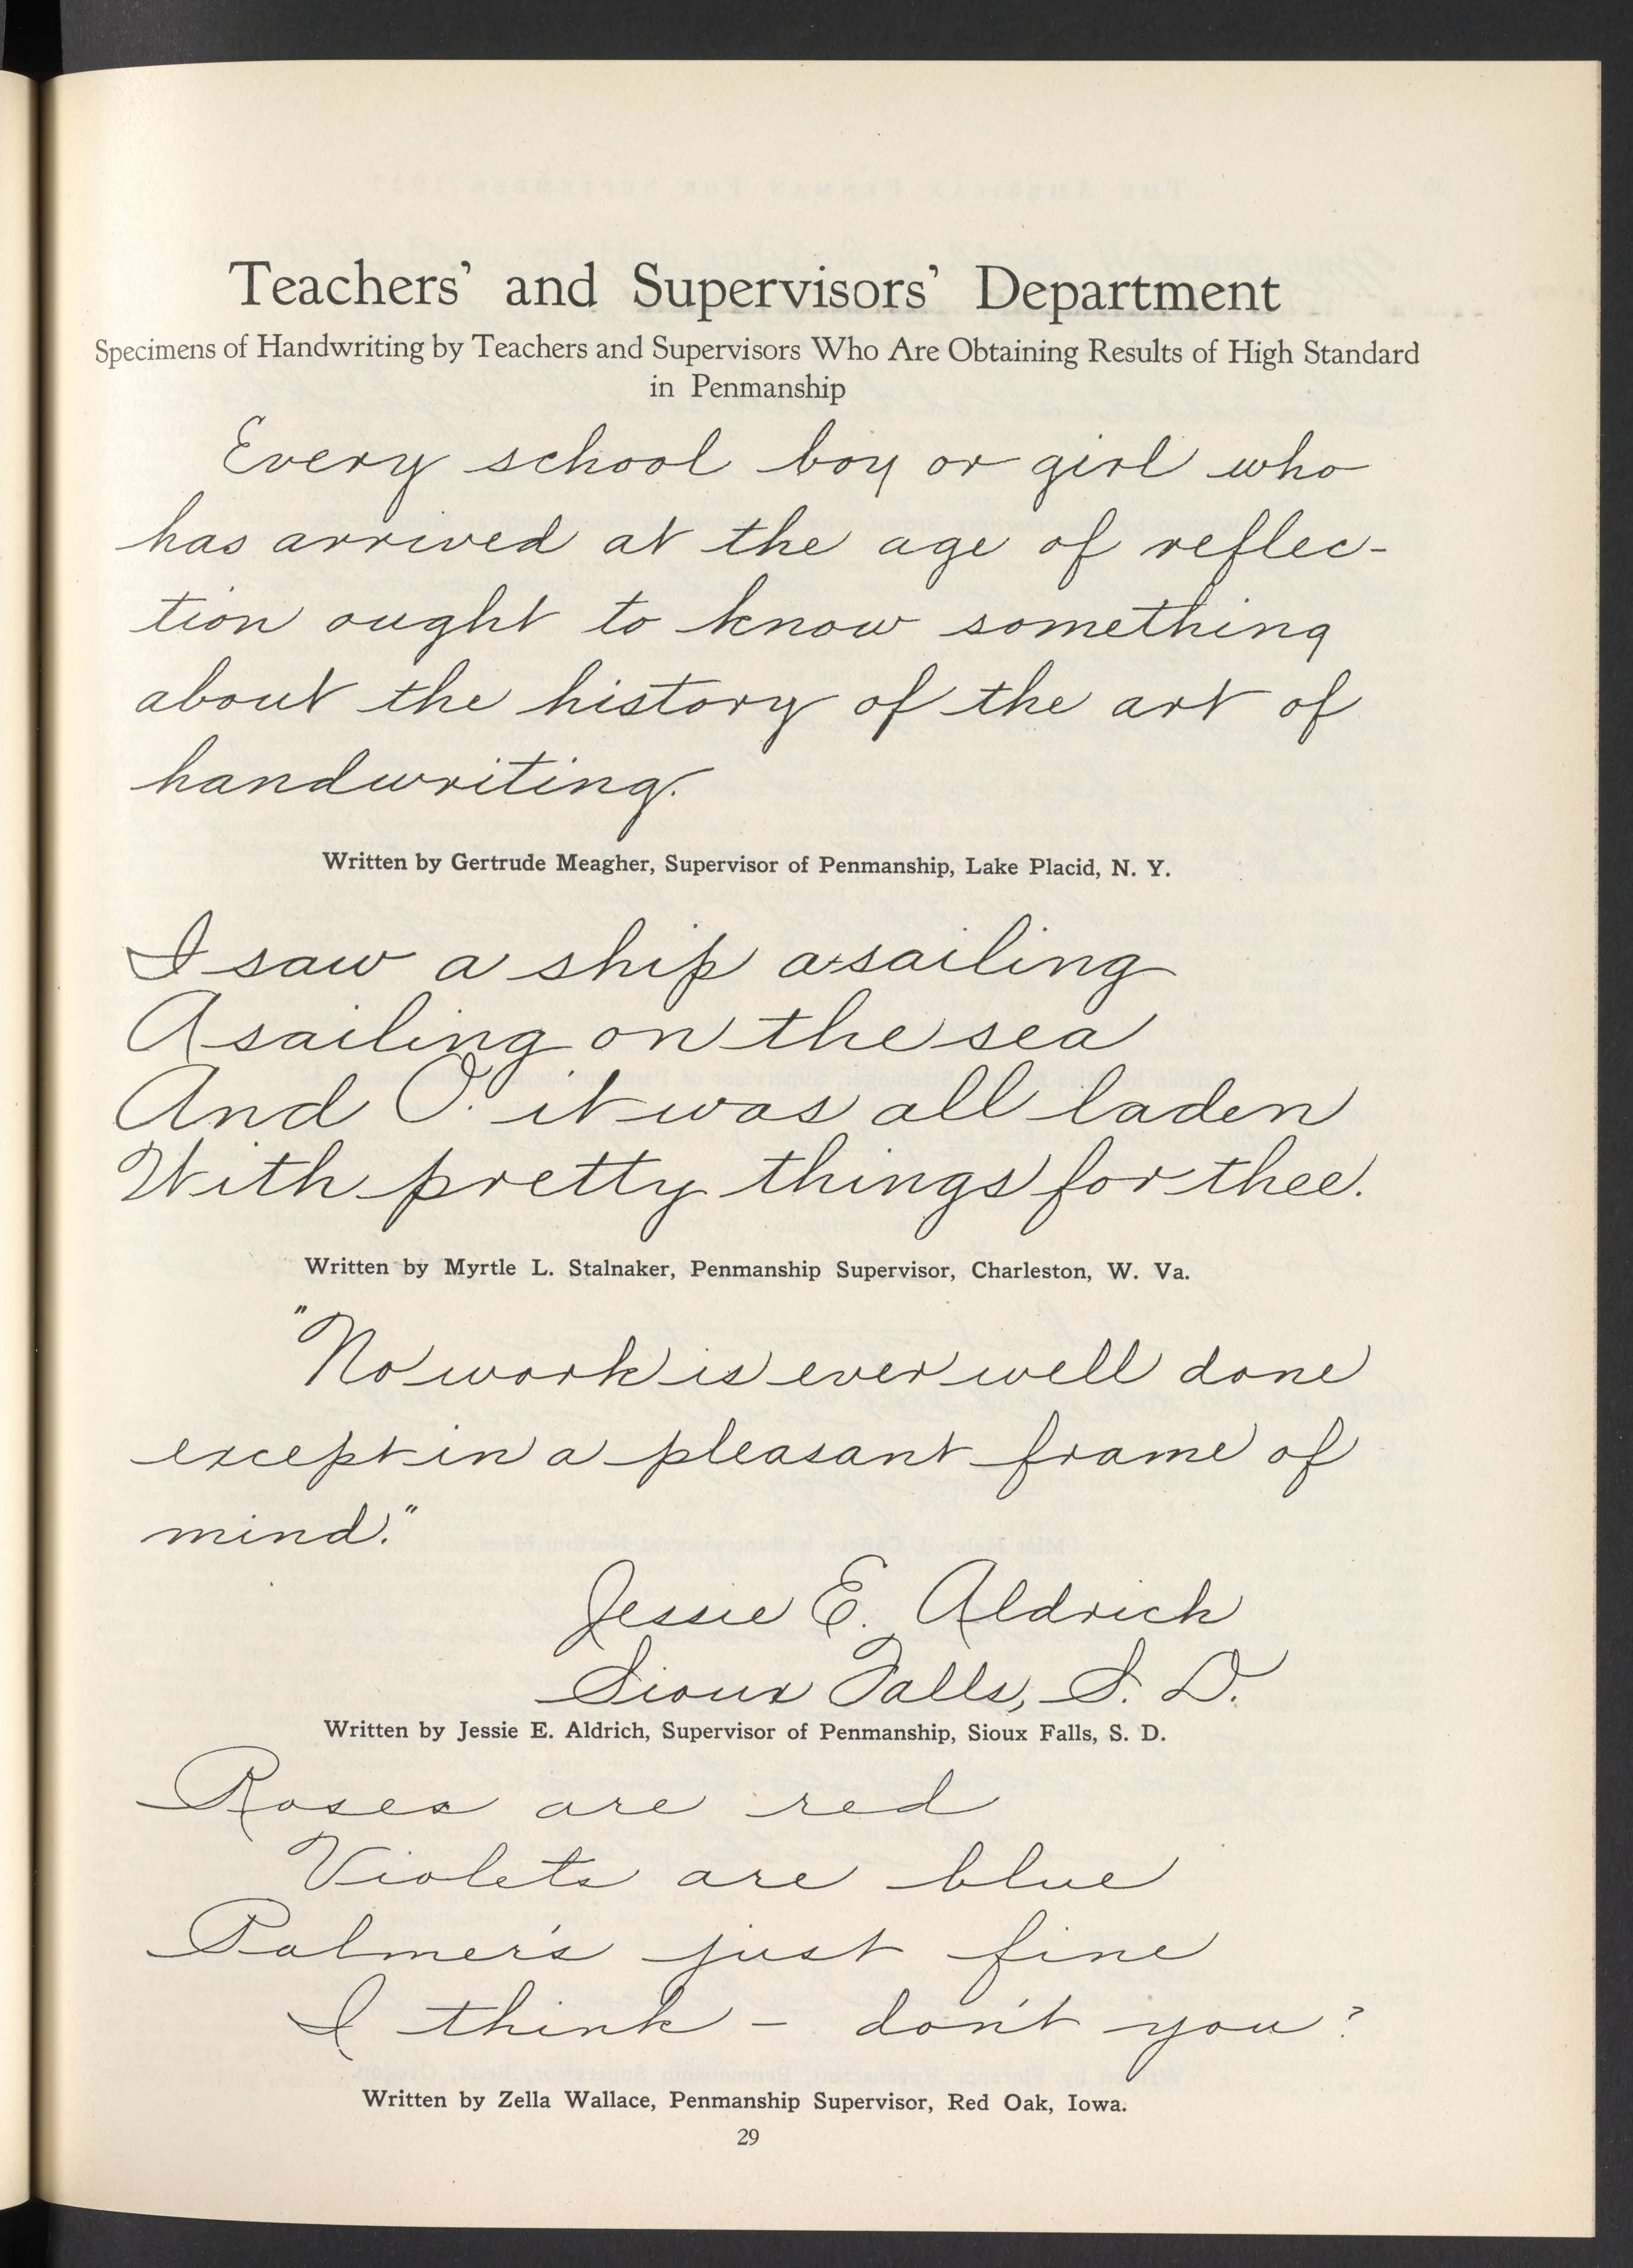 Teachers’ and Supervisors’ Department
Specimens of Handwriting by Teachers and Supervisors Who Are Obtaining Results of High Standard
in Penmanship
Every school boy or girl who
has arrived at the age of reflec-
tion ought to know something
about the history of the art of
handwriting.
Written by Gertrude Meagher, Supervisor of Penmanship, Lake Placid, N. Y.
I saw a ship a-sailing
A sailing on the sea
And O! it was all laden
With pretty things for thee.
Written by Myrtle L. Stalnaker, Penmanship Supervisor, Charleston, W. Va.
"No work is ever well done
except in a pleasant frame of
mind."
Jessie E. Aldrich
Sioux Falls, S. D.
Written by Jessie E. Aldrich, Supervisor of Penmanship, Sioux Falls, S. D.
Roses are red
Violets are blue
Palmer's just fine
I think - don't you?
Written by Zella Wallace, Penmanship Supervisor, Red Oak, Iowa.
29